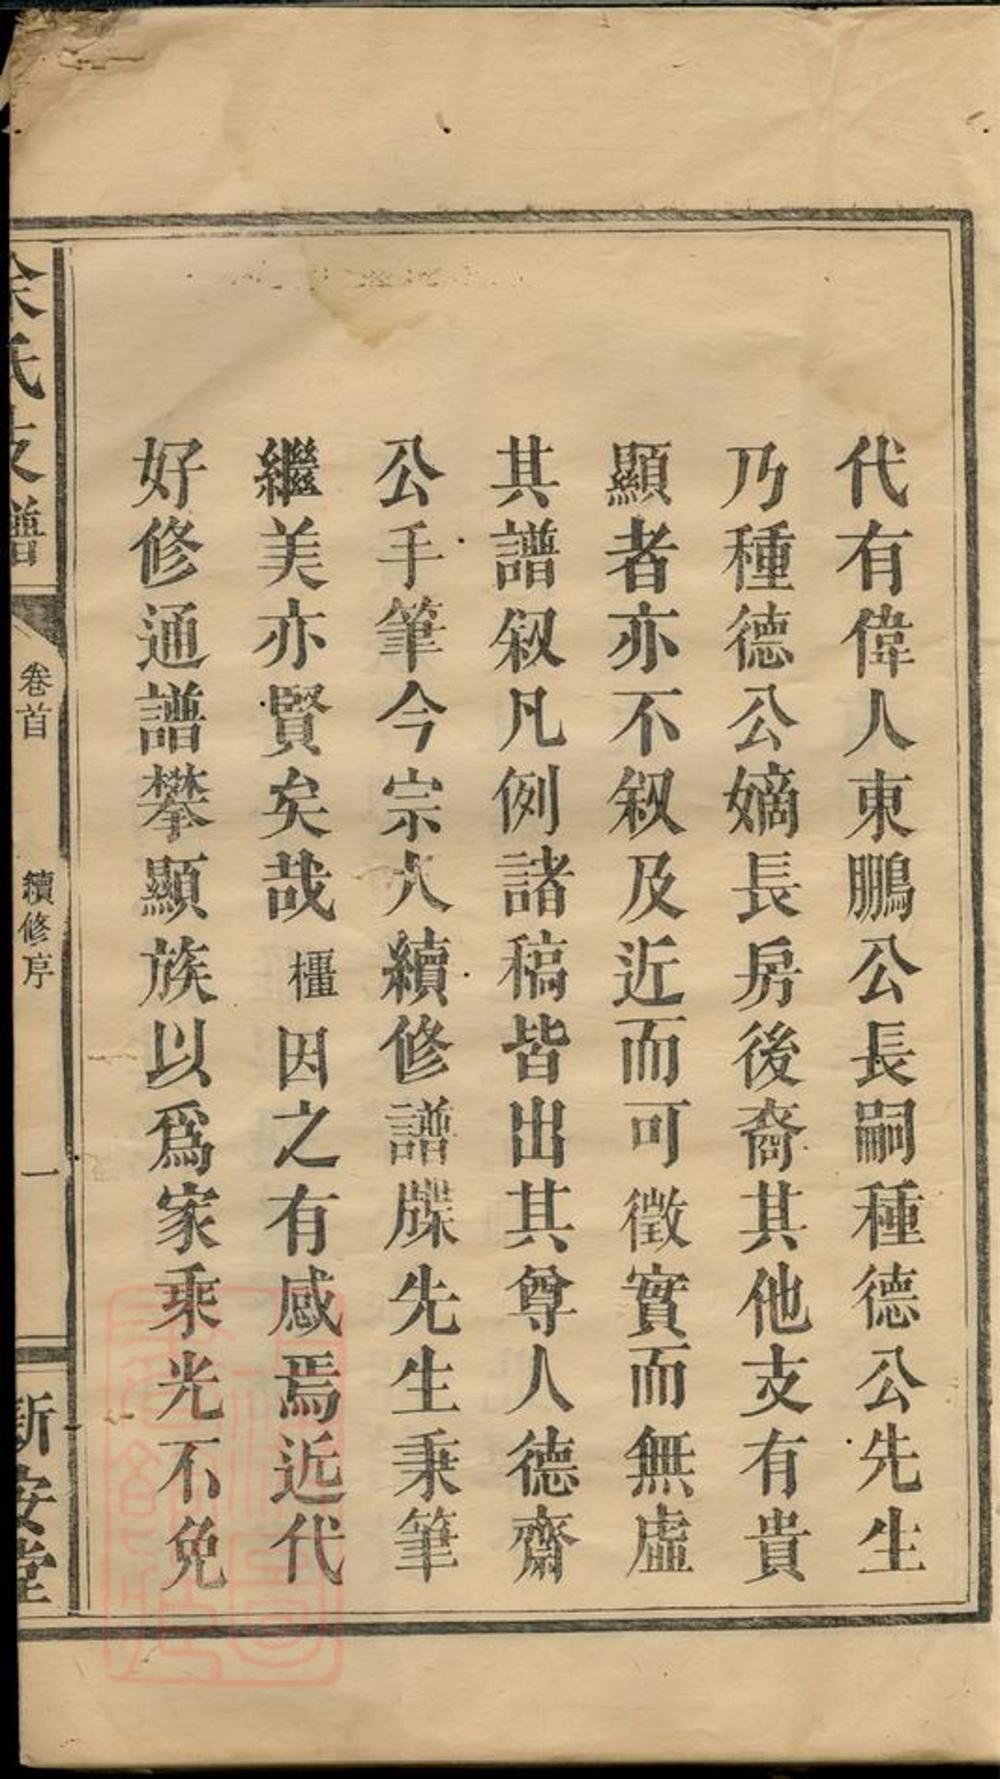 代有偉人東鵬公長嗣種德公先生
乃種德公嫡長房後裔其他支有貴
顯者亦不叙及近而可徵實而無虛
其譜叙凡例諸稿皆出其尊人德齋
公手筆今宗人續修譜牒先生秉筆
繼美亦賢矣哉櫃因之有感焉近代
好修通譜攀顯族以爲家乘光不免
余氏支譜
卷首
續修序
一
新安堂